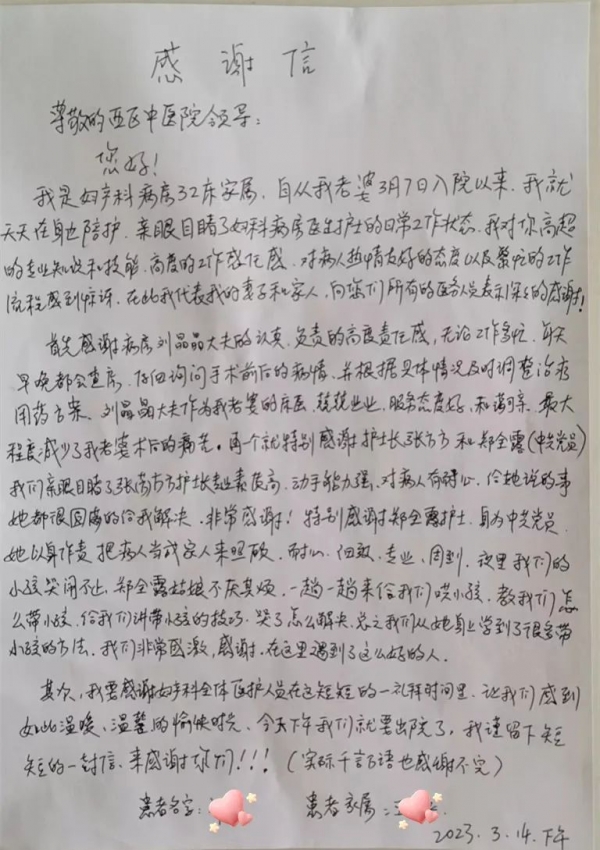 感谢信
尊敬的西区中医院领导:
您好!
我是妇产科病房32床家属,自从我老婆3月7日入院以来,我就
天天在身边陪护,亲眼目睹了妇科病房医生护士的日常工作状态,我对你高超
的专业知识和技能、高度的工作责任感,对病人热情友好的态度以及繁忙的工作
流程感到惊讶,在此我代表我的妻子和家人,向您们所有的医务人员表示深深的感谢!
首先感谢病房刘晶晶大夫的认真、负责的高度责任感,无论工作多忙,每天
早晚都会查房,仔细询问手术前后的病情,并根据具体情况及时调整治疗
用药方案。刘晶晶大夫作为我老婆的床医,兢兢业业,服务态度好,和蔼可亲,最大
程度减少了我老婆术后的痛苦。再个就特别感谢护士长张方方和郑全露(中共党员)
我们亲眼目睹了张方方护士长专业素质高,动手能力强,对病人有耐心,给她说的事
她都很圆满的给我解决,非常感谢!特别感谢郑全露护士,身为中共党员,
她以身作责把病人当成家人来照顾,耐心、细致、专业、周到,夜里我们的
小孩哭闹不止,郑全露姑娘不厌其烦,一趟一趟来给我们哄小孩,教我们怎
么带小孩,给我们讲带小孩的技巧,哭了怎么解决,总之我们从她身上学到了很多带
小孩的方法,我们非常感激,感谢,在这里遇到了这么好的人。
其次,我要感谢妇产科全体医护人员在这短短的一礼拜时间里,让我们感到
如此温暖、温馨的愉快时光,今天下午我们就要出院了,我谨留下短
短的一封信,来感谢你们!!!(实际千言万语也感谢不完)
患者名字: 患者家属:王
2023.3.14.下午